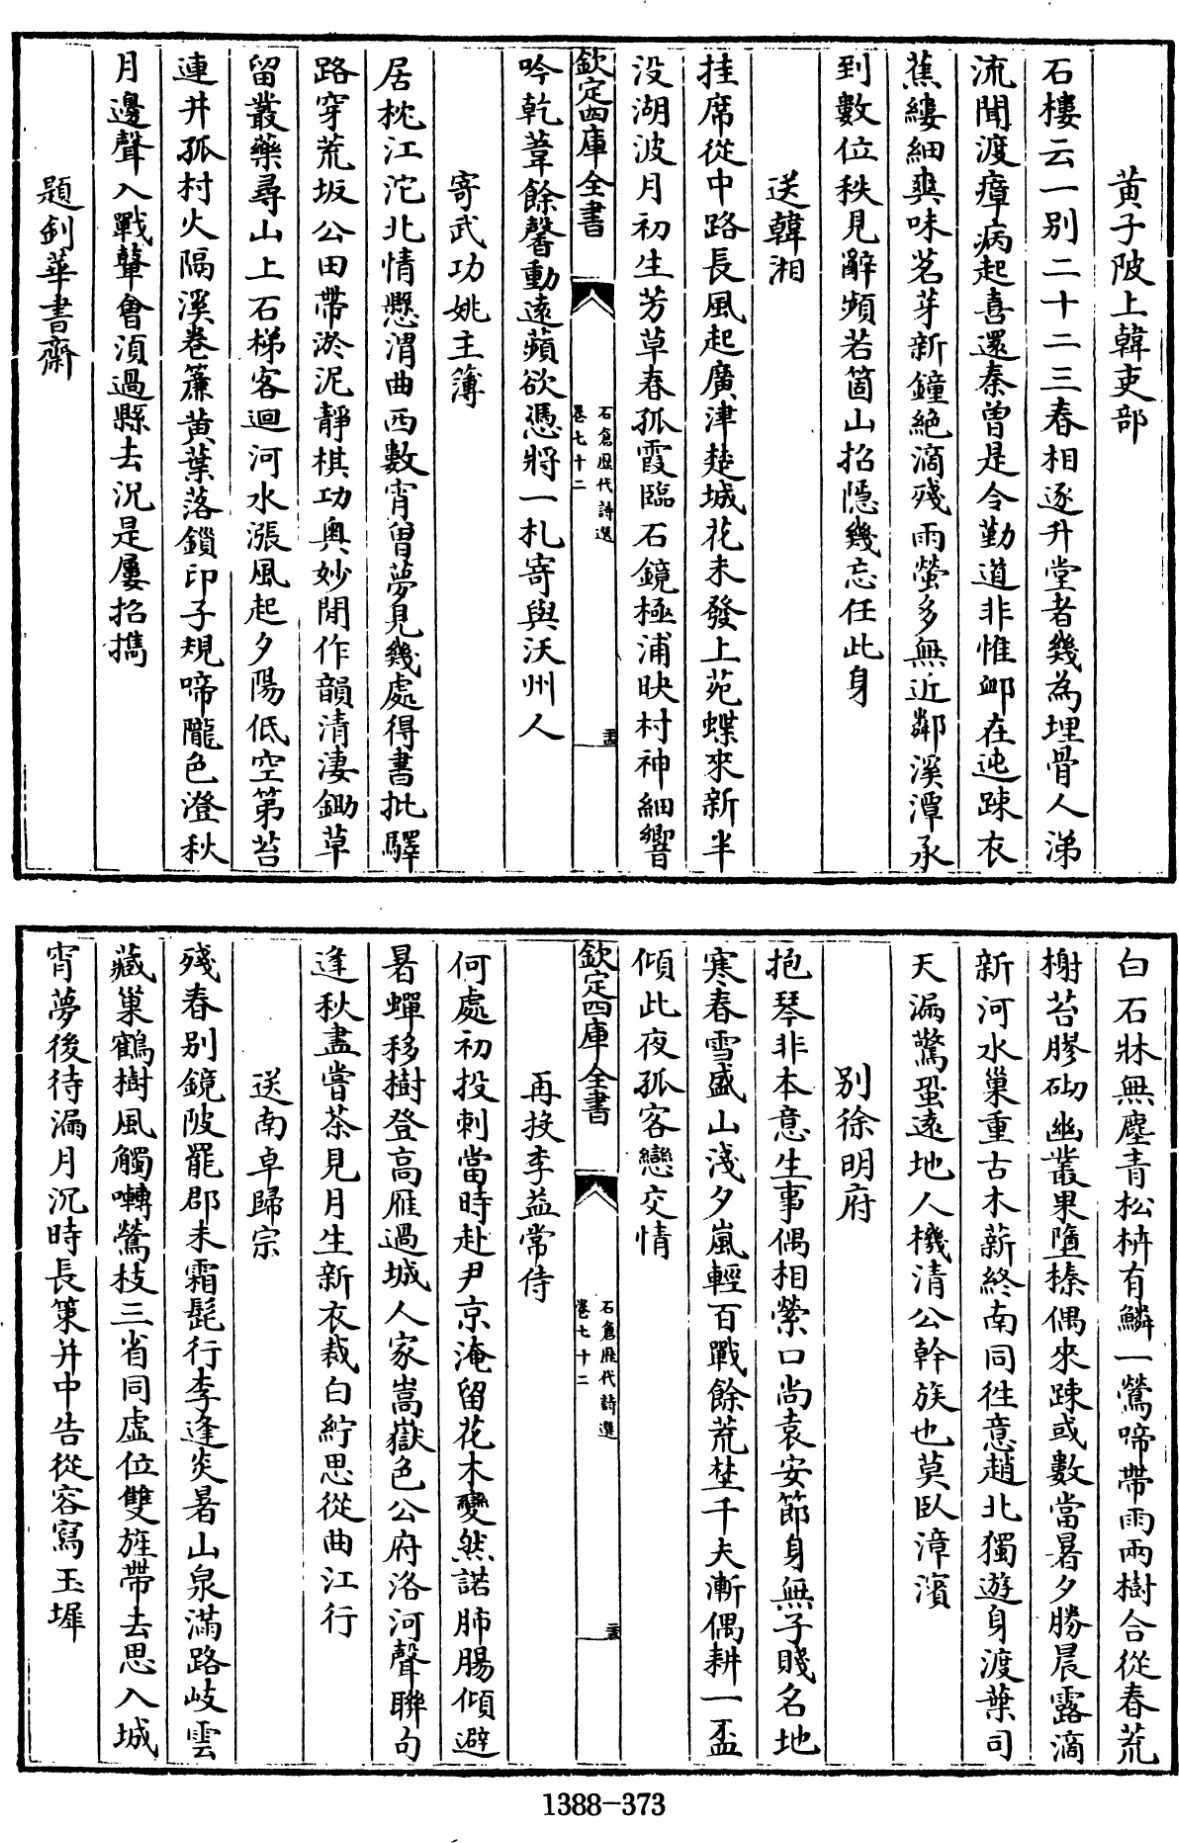 黄子陂上韓吏部
石樓云一别二十二三春相逐升堂者幾為埋骨人涕
流聞渡瘴病起喜還秦曽是令勤道非惟䘏在迍踈衣
蕉縷細爽味茗芽新鐘絶滴殘雨螢多無近鄰溪潭承
到數位秩見辭頻若箇山招隱幾忘任此身
送韓湘
挂席從中路長風起廣津楚城花未發上苑蝶來新半
没湖波月初生芳草春孤霞臨石鏡極浦映村神細響
欽定四庫全書
石倉歷代詩選
卷七十二
吟乾葦餘馨動遠蘋欲憑將一札寄與沃州人
寄武功姚主簿
居枕江沱北情懸渭曲西數宵曽夢見幾處得書批驛
路穿荒坂公田帶淤泥靜棋功奥妙閒作韻清淒鋤草
留叢藥尋山上石梯客迴河水漲風起夕陽低空第苔
連井孤村火隔溪巻簾黄葉落鎖印子規啼隴色澄秋
月邊聲入戰鼙會湏過縣去况是屢招擕
題劉華書齋
白石牀無塵青松樹有鱗一鶯啼帶雨兩樹合從春荒
榭苔膠砌幽叢果墮榛偶來踈或數當暑夕勝晨露滴
新河水巢重古木薪終南同徃意趙北獨遊身渡葉司
天漏驚蛩逺地人機清公幹族也莫臥漳濱
别徐明府
抱琴非本意生事偶相縈口尚袁安節身無子賤名地
寒春雪盛山淺夕嵐輕百戰餘荒埜千夫漸偶耕一盃
傾此夜孤客戀交情
欽定四庫全書
石倉歷代詩選
卷七十二
再投李益常侍
何處初投刺當時赴尹京淹留花木變然諾肺腸傾避
暑蟬移樹登髙雁過城人家嵩嶽色公府洛河聲聯句
逢秋盡嘗茶見月生新衣裁白紵思從曲江行
送南卓歸京
殘春别鏡陂罷郡未霜髭行李逢炎暑山泉滿路岐雲
藏巢鶴樹風觸囀鶯枝三省同虚位雙旌帶去思入城
宵夢後待漏月沉時長策并中告從容寫玉墀
1388-373